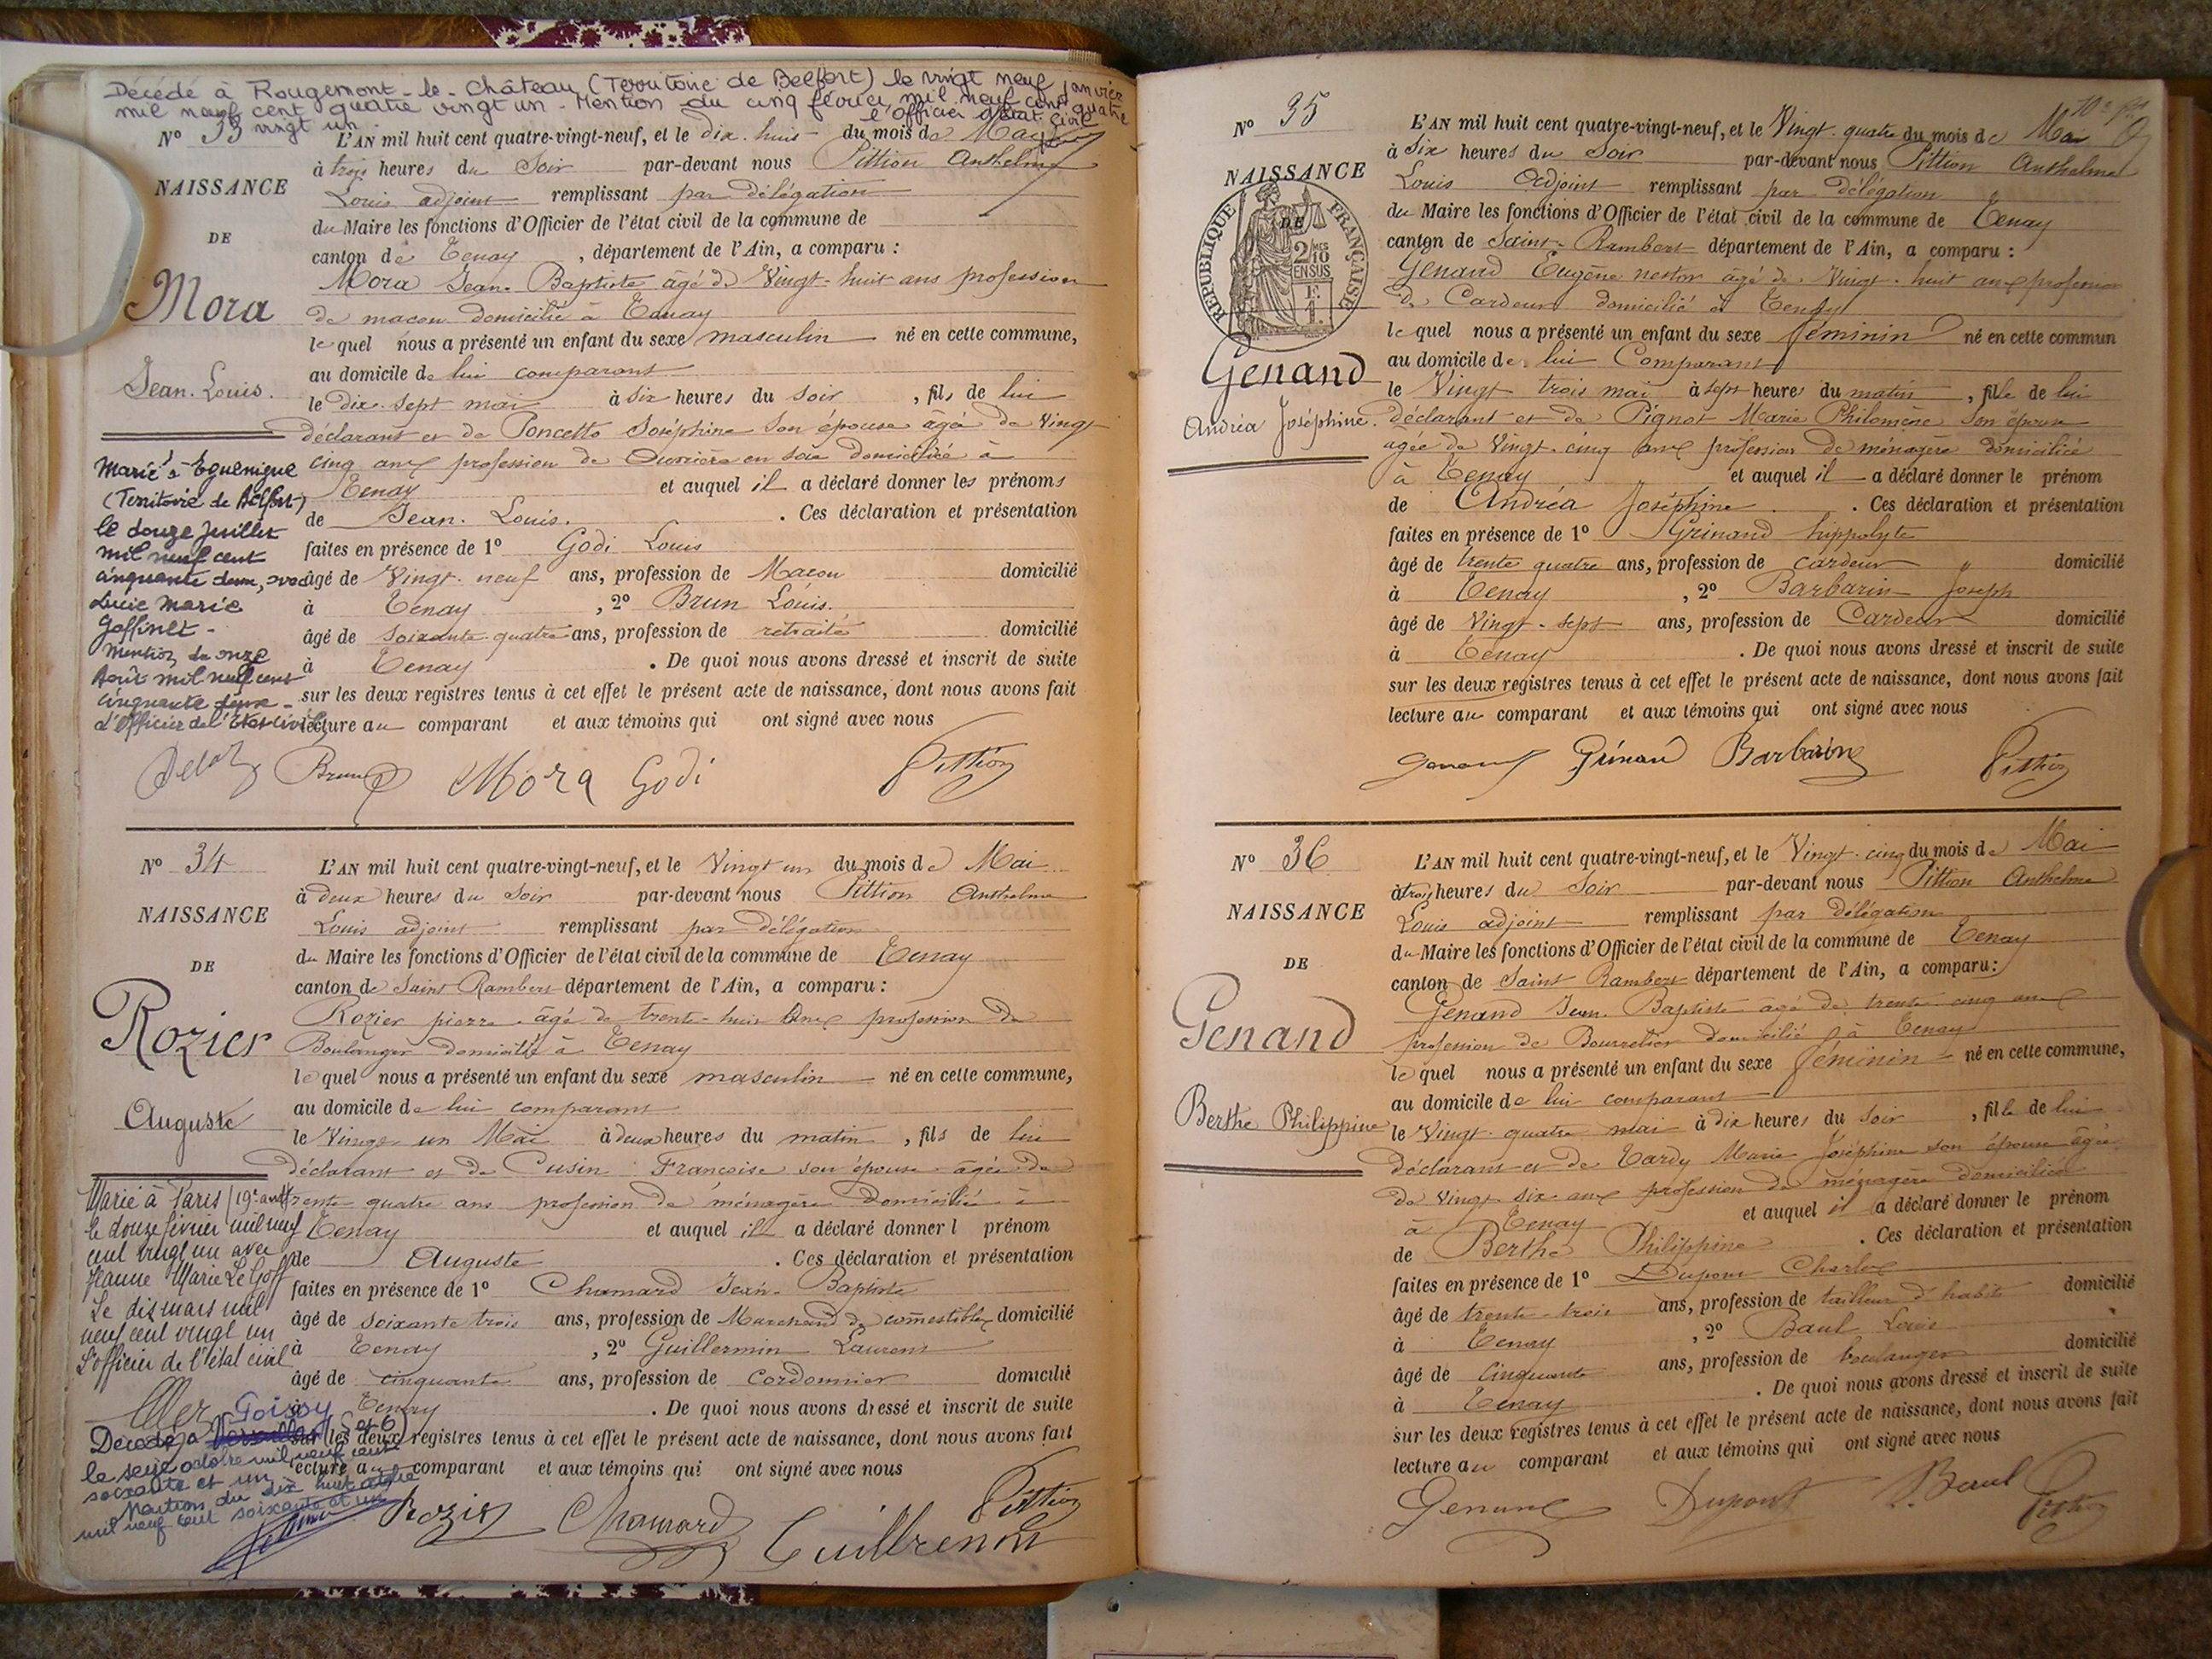 Décédé à Rougemont-le-Château (Territoire de Belfort) le vingt neuf janvier
mil neuf cent quatre vingt un - Mention du cinq février mil neuf cent quatre
vingt un
l'Officier d'état civil
N° 33
NAISSANCE
DE
Mora
Jean-Louis.
L'AN mil huit cent quatre-vingt-neuf, et le dix-huit du mois de Mai
à trois heures du Soir par-devant nous Pittion Anthelme
Louis adjoint remplissant par délégation
du Maire les fonctions d'Officier de l'état civil de la commune de
canton de Tenay, département de l'Ain, a comparu :
Mora Jean-Baptiste âgé de Vingt-huit ans profession
de maçon domicilié à Tenay
lequel nous a présenté un enfant du sexe masculin né en cette commune,
au domicile de lui comparant
le dix-sept mai à six heures du soir, fils de lui
déclarant et de Poncetto Joséphine son épouse âgée de Vingt
cinq ans profession de Ouvrière en soie domiciliée à
Tenay et auquel il a déclaré donner les prénoms
de Jean-Louis. Ces déclaration et présentation
faites en présence de 1° Godi Louis
âgé de Vingt-neuf ans, profession de Maçon domicilié
à Tenay, 2° Brun Louis.
âgé de soixante-quatre ans, profession de retraité domicilié
à Tenay. De quoi nous avons dressé et inscrit de suite
sur les deux registres tenus à cet effet le présent acte de naissance, dont nous avons fait
lecture au comparant et aux témoins qui ont signé avec nous
Marié à Eguenigue
(Territoire de Belfort)
le douze Juillet
mil neuf cent
cinquante deux, avec
Lucie Marie
Goffinet -
Mention du onze
Août mil neuf cent
cinquante deux -
L'Officier de l'Etat-civil,
Brun Mora Godi Pittion
N° 34
NAISSANCE
DE
Rozier
Auguste
L'AN mil huit cent quatre-vingt-neuf, et le Vingt un du mois de Mai
à deux heures du Soir par-devant nous Pittion Anthelme
Louis adjoint remplissant par délégation
du Maire les fonctions d'Officier de l'état civil de la commune de Tenay
canton de Saint Rambert département de l'Ain, a comparu :
Rozier pierre âgé de trente-huit ans profession de
Boulanger domicilié à Tenay
lequel nous a présenté un enfant du sexe masculin né en cette commune,
au domicile de lui comparant
le Vingt un Mai à deux heures du matin, fils de lui
déclarant et de Cusin Françoise son épouse âgée de
trente quatre ans profession de ménagère domiciliée à
Tenay et auquel il a déclaré donner l prénom
de Auguste. Ces déclaration et présentation
faites en présence de 1° Chamard Jean-Baptiste
âgé de soixante trois ans, profession de Marchand de comestibles domicilié
à Tenay, 2° Guillermin Laurent
âgé de cinquante ans, profession de Cordonnier domicilié
à Tenay. De quoi nous avons dressé et inscrit de suite
sur les deux registres tenus à cet effet le présent acte de naissance, dont nous avons fait
lecture au comparant et aux témoins qui ont signé avec nous
Marié à Paris (19e arrt)
le douze février mil neuf
cent vingt un avec
Jeanne Marie Le Goff
Le dix mars mil
neuf cent vingt un
L'officier de l'état civil
Poissy
Décédé à Versailles (S et O)
le seize octobre mil neuf cent
soixante et un
Mention du dix huit octobre
mil neuf cent soixante et un
Rozier Chamard Guillermin Pittion
N° 35
NAISSANCE
DE
RÉPUBLIQUE FRANÇAISE
2/10
MES
EN SUS
Genand
Andréa Joséphine.
L'AN mil huit cent quatre-vingt-neuf, et le Vingt-quatre du mois de Mai
à Six heures du Soir par-devant nous Pittion Anthelme
Louis Adjoint remplissant par délégation
du Maire les fonctions d'Officier de l'état civil de la commune de Tenay
canton de Saint-Rambert département de l'Ain, a comparu :
Genand Eugène nestor âgé de Vingt-huit ans profession
de Cardeur domicilié à Tenay
lequel nous a présenté un enfant du sexe féminin né en cette commun
au domicile de lui Comparant
le Vingt trois mai à sept heures du matin, fille de lui
déclarant et de Pignot Marie Philomène son épouse
âgée de Vingt-cinq ans profession de ménagère domicilié
à Tenay et auquel il a déclaré donner le prénom
de Andréa Joséphine. Ces déclaration et présentation
faites en présence de 1° Grinand hippolyte
âgé de trente quatre ans, profession de cardeur domicilié
à Tenay, 2° Barbarin Joseph
âgé de Vingt-sept ans, profession de Cardeur domicilié
à Tenay. De quoi nous avons dressé et inscrit de suite
sur les deux registres tenus à cet effet le présent acte de naissance, dont nous avons fait
lecture au comparant et aux témoins qui ont signé avec nous
Genand Grinand Barbarin Pittion
N° 36
NAISSANCE
DE
Genand
Berthe Philippine
L'AN mil huit cent quatre-vingt-neuf, et le Vingt-cinq du mois de Mai
à trois heures du Soir par-devant nous Pittion Anthelme
Louis adjoint remplissant par délégation
du Maire les fonctions d'Officier de l'état civil de la commune de Tenay
canton de Saint Rambert département de l'Ain, a comparu :
Genand Jean-Baptiste âgé de trente cinq ans
profession de Bourrelier domicilié à Tenay
lequel nous a présenté un enfant du sexe féminin né en cette commune,
au domicile de lui comparant
le Vingt-quatre mai à dix heures du Soir, fille de lui
déclarant et de Tardy Marie Joséphine son épouse âgée
de Vingt-six ans profession de ménagère domiciliée
à Tenay et auquel il a déclaré donner le prénom
de Berthe Philippine. Ces déclaration et présentation
faites en présence de 1° Dupont Charles
âgé de trente-trois ans, profession de tailleur d'habits domicilié
à Tenay, 2° Baul Louis
âgé de Cinquante ans, profession de boulanger domicilié
à Tenay. De quoi nous avons dressé et inscrit de suite
sur les deux registres tenus à cet effet le présent acte de naissance, dont nous avons fait
lecture au comparant et aux témoins qui ont signé avec nous
Genand Dupont L. Baul Pittion